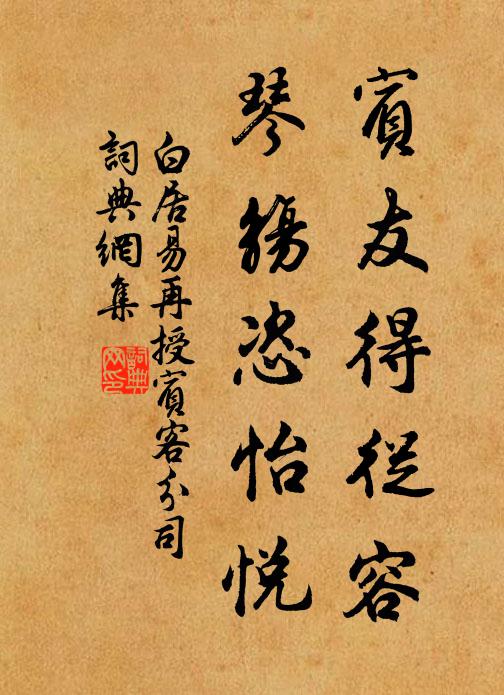 賓友得從容
琴觴恣怡悅
白居易再授賓客分司
詞典網集
詞典
网印